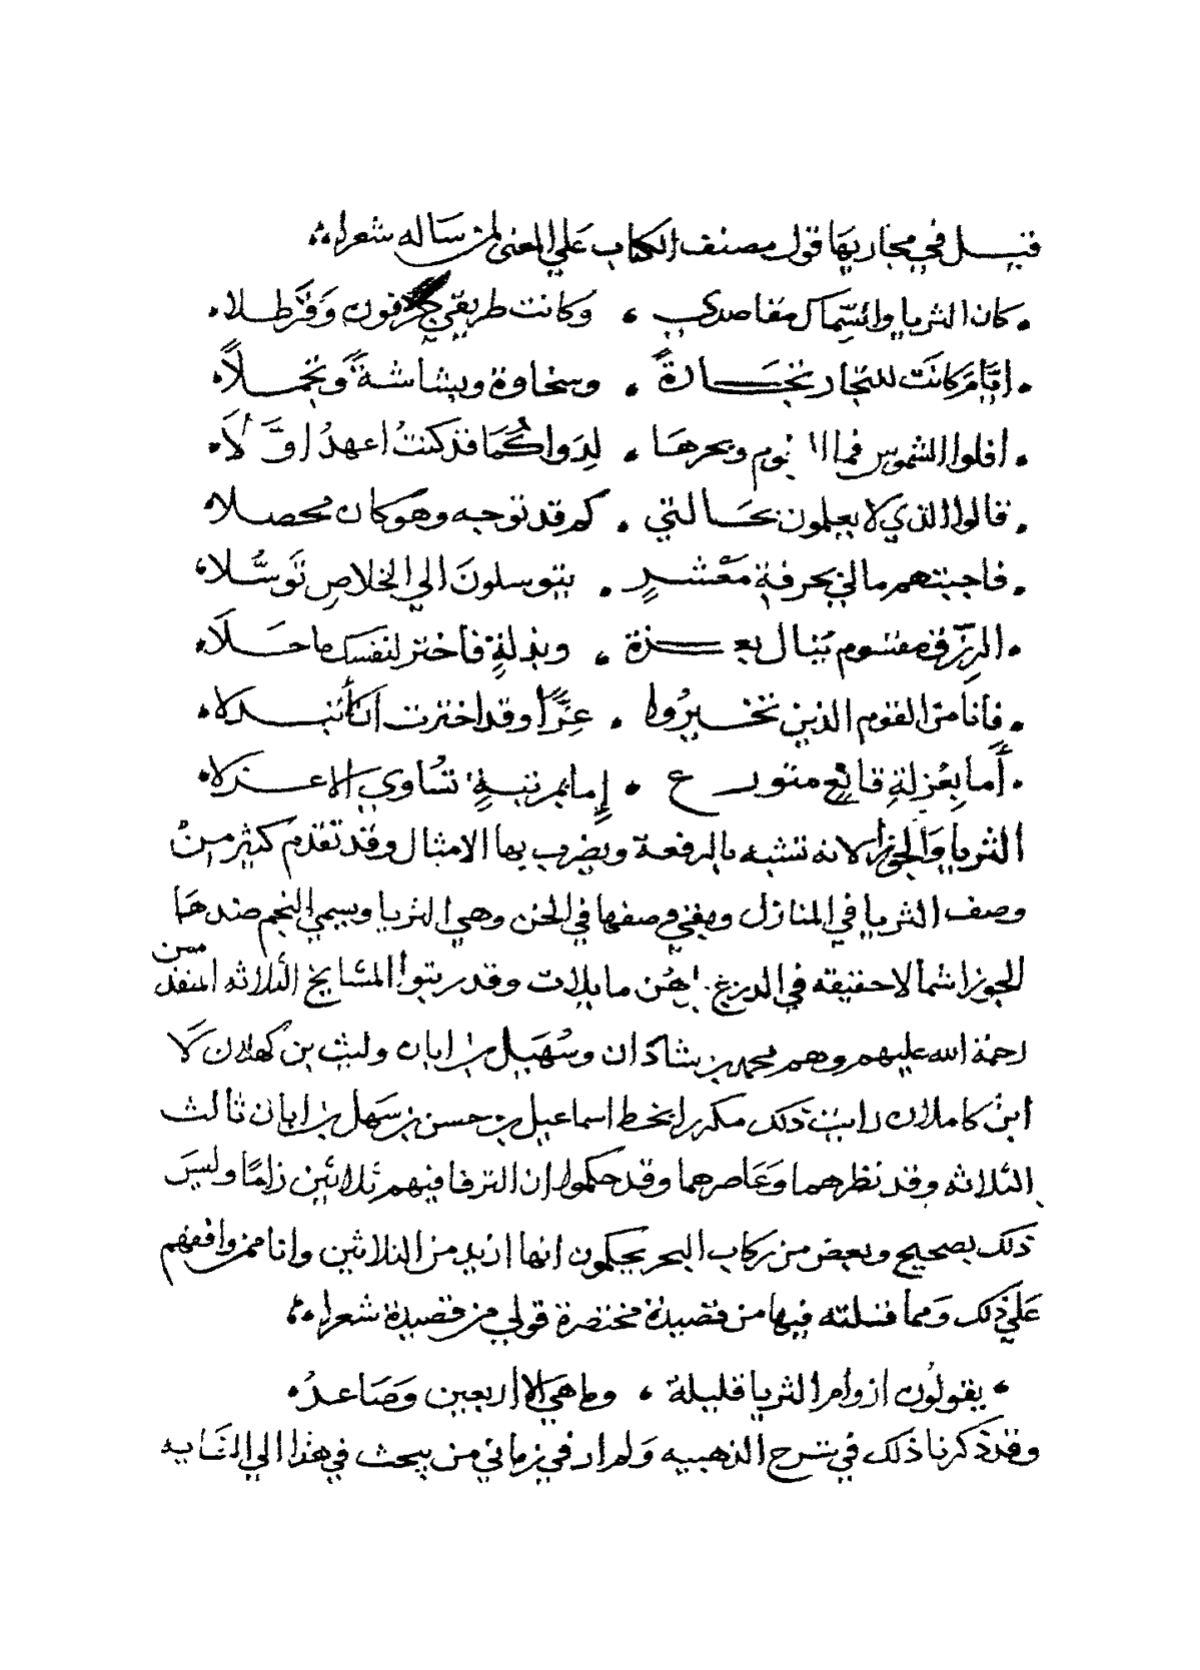 قيل في مجاريها قول مصنف الكتاب علي المعنى لمن ساله شعرا
كان الثريا والسماك مقاصدي ، وكانت طريقي وقرطلا
ايام كانت للتجار تجارة ، وسخاوة وبشاشة وتجملا
افلوا الشموس فما نوم وبحرها ، لدواكما قد كنت اعهد اولا
قالوا الذي لا يعلمون بحالتي ، كم قد توجه وهو كان محصلا
فاجبتهم مالي بحرفة معشر ، يتوسلون الي الخلاص توسلا
الرزق مقسوم ينال بعزة ، وبذلة فاختر لنفسك ما حلا
فانا من القوم الذين تخيروا ، عزا وقد اخترت ان اتبدلا
أما بعزلة قانع متورع ، إما بمرتبة تساوي الاعزلا
الثريا والجوزا لانه تشبه بالرفعة ويضرب بها الامثال وقد تقدم كثير من
وصف الثريا في المنازل وبقي وصفها في الخن وهي الثريا ويسمي النجم ضدها
الجوزا اسما لا حقيقه في الديرة مابلات وقد ريتوا المشايخ الثلاثه المتقدمين
رحمة الله عليهم وهم محمد بن شاذان وسهيل بن ابان وليث بن كهلان لا
ابن كاملان رايت ذلك مكررا بخط اسماعيل بن حسن بن سهل بن ابان ثالث
الثلاثه وقد نظرهما وعاصرهما وقد حكموا ان الترفا فيهم ثلاثين زاما وليس
ذلك بصحيح وبعض من ركاب البحر يحكون انها ازيد من الثلاثين وانا ممن وافقهم
علي ذلك ومما قلته فيها من قصيدة مختصرة قولي من قصيدة شعرا
يقولون ازوام الثريا قليلة ، وما هي الا اربعين وصاعد
وقد ذكرنا ذلك في شرح الذهبيه ولم ار في زماني من يبحث في هذا الي النايه